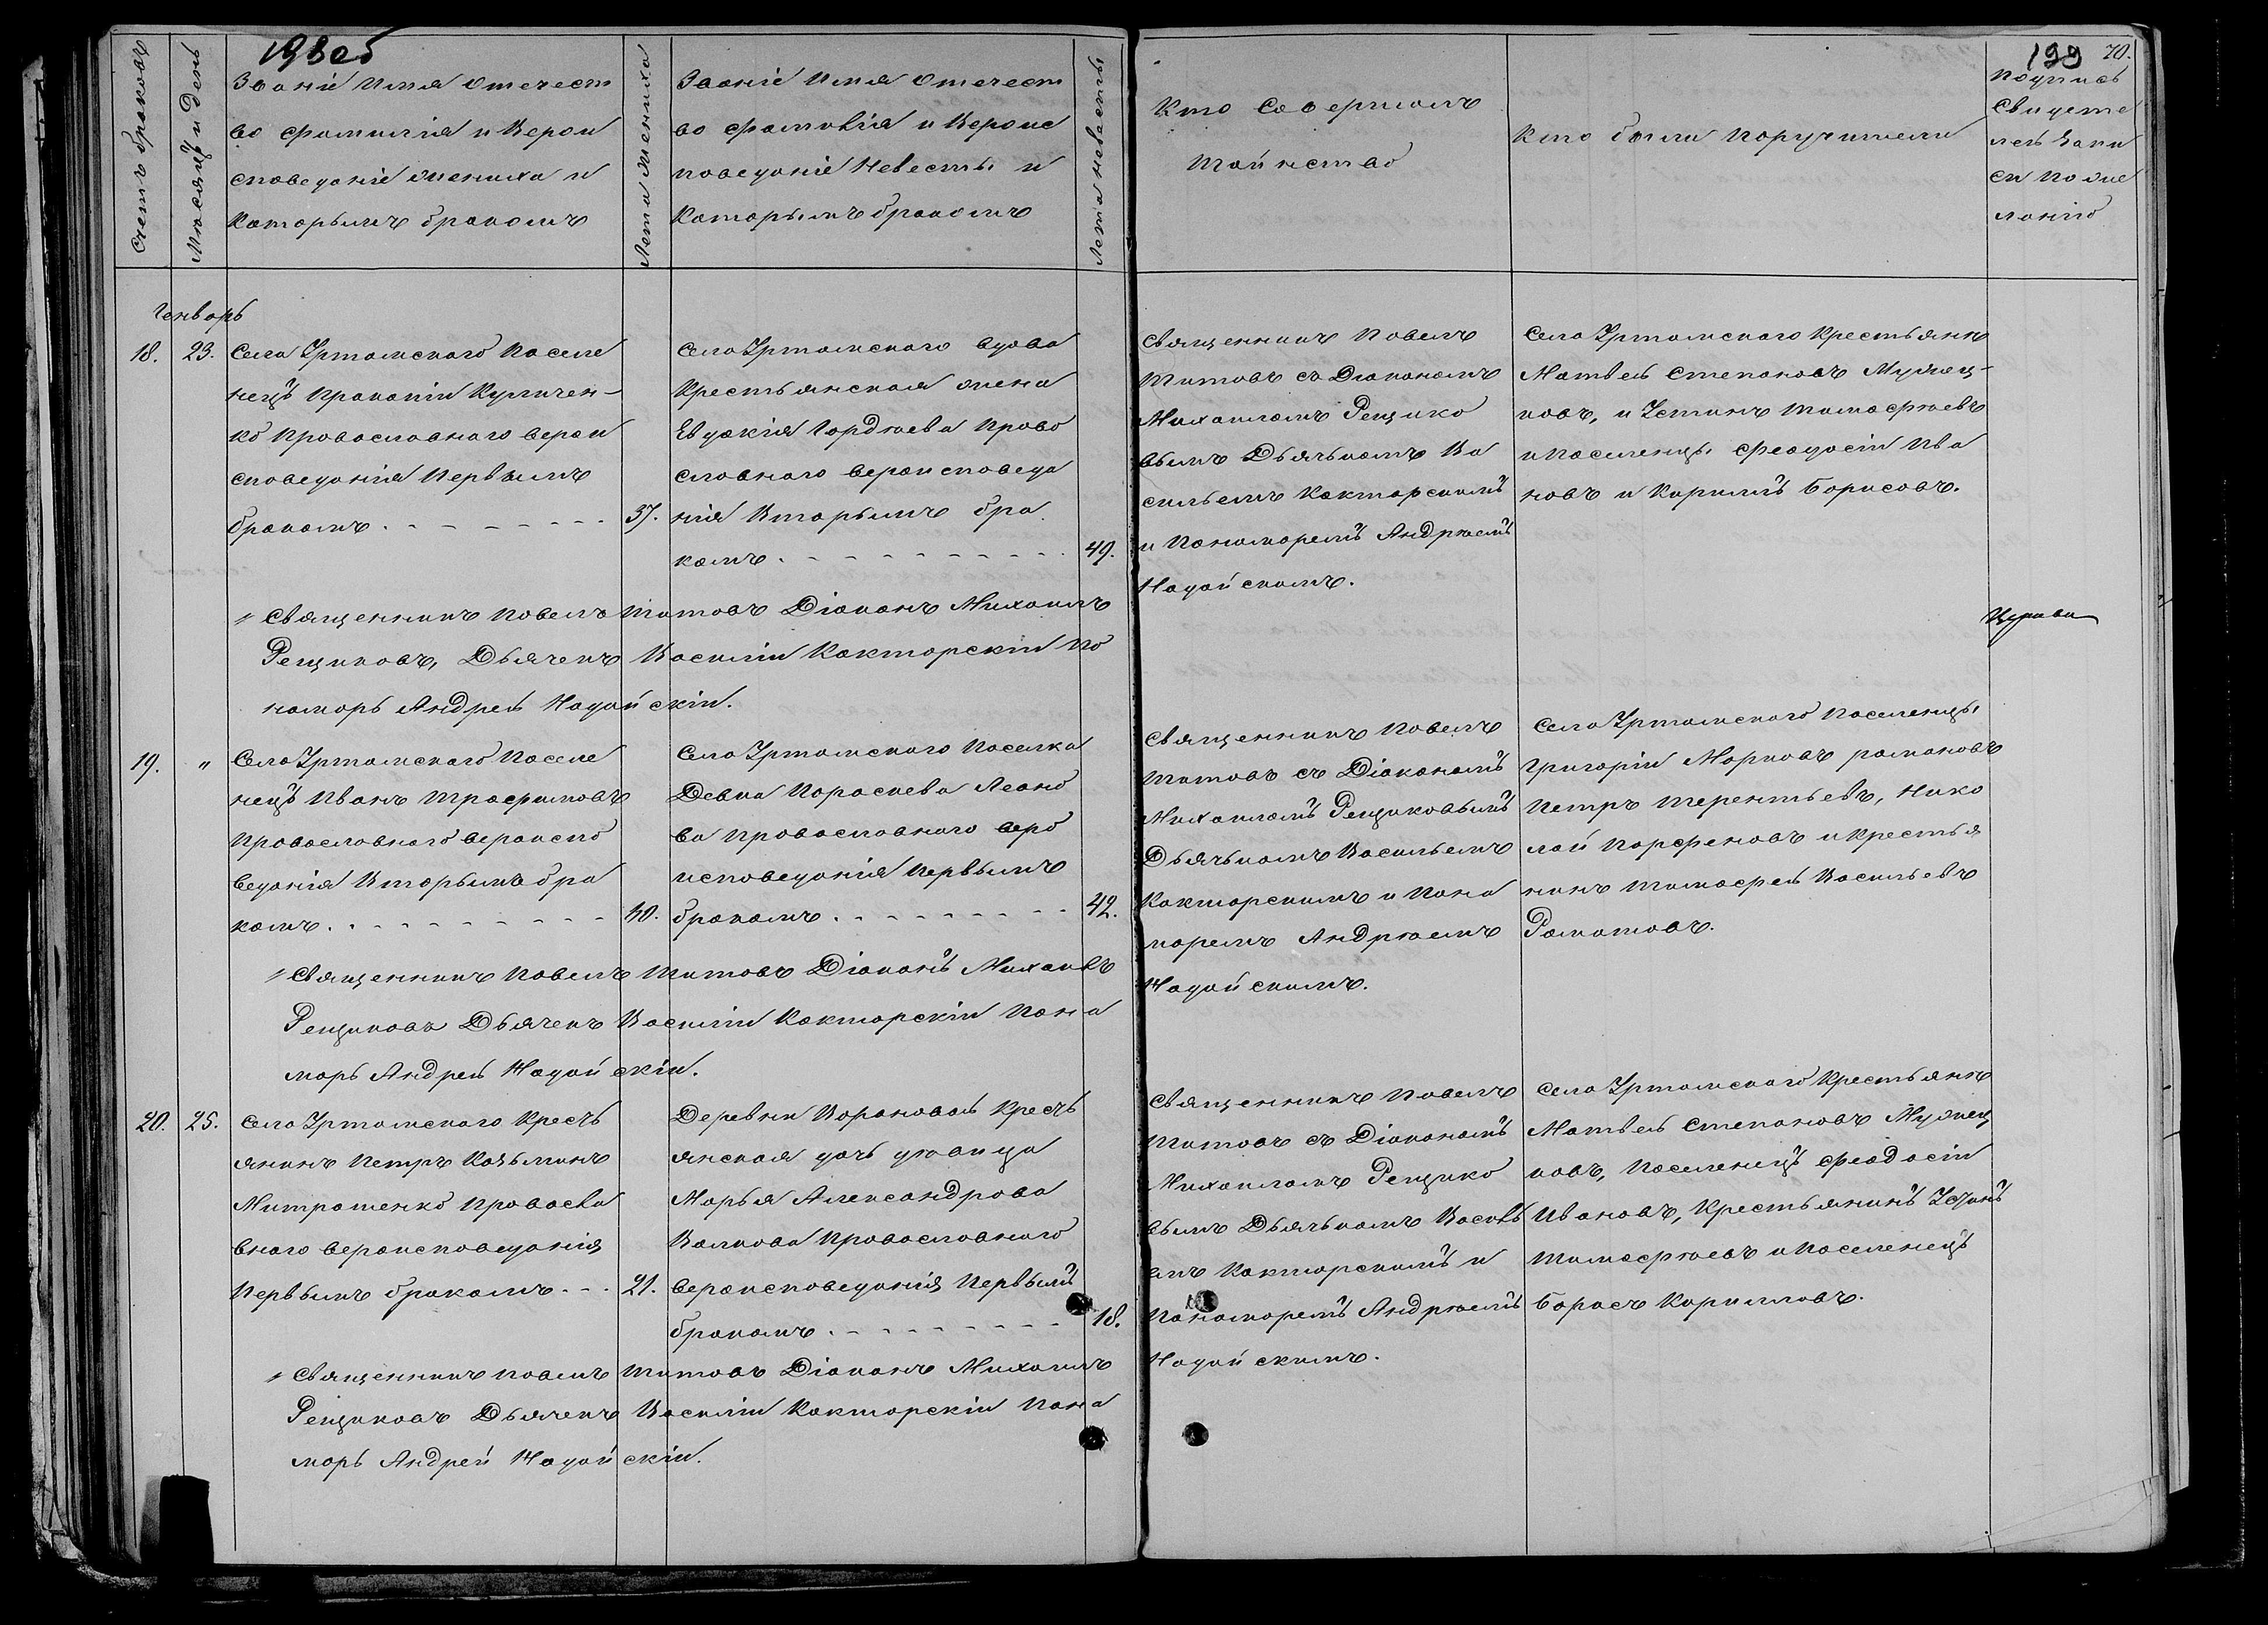 193об
199
70.
Счетъ браковъ
Мѣсяцъ и День
Званіе Имя Отечест
во Фамилія и Верои
споведаніе жениха и
Которымъ бракомъ
Лета Жениха
Званіе Имя Отечест
во Фамилія и Вероис
поведаніе Невесты и
Которымъ бракомъ
Лета Невесты
Кто Совершилъ
Таинство
Кто были Поручители
Подпись
Свидете
лей Запи
си По же
ланію
Генварь
18.
23.
Села Уртамскаго Поселе
нецъ Пракопіи Куличен-
ко Православнаго верои
споведанія Первымъ
бракомъ
37.
Села Уртамскаго вдова
Крестьянская жена
Евдокія Гордѣева Право
славнаго вероисповеда
нія Вторымъ бра
комъ
49.
Священникъ Павелъ
Титовъ съ Діаконамъ
Михаиламъ Рещико
вымъ Дьячькамъ Ва
сильемъ Кокторскимъ
и Панамаремъ Андрѣемъ
Надойскимъ.
Села Уртамскаго Крестьяне
Матвей Степановъ
Устинъ Тимофѣевъ
и Поселенцы Феодосіи Ива
новъ и Кирилъ Борисовъ.
Священникъ Павелъ Титовъ Діаканъ Михаилъ
Рещиковъ, Дьячекъ Василіи Кокторскіи По
намарь Андрей Надойскіи.
19.
"
Села Уртамскаго Поселе
нецъ Иванъ Трафимовъ
Православнаго вероиспо
веданія Вторымъ бра
комъ
40.
Села Уртамскаго Поселка
Девка Параскева Леоно
ва Православнаго веро
исповеданія Первымъ
бракомъ
42.
Священникъ Павелъ
Титовъ съ Діаконамъ
Михаиламъ Рещиковымъ
Дьячькамъ Васильемъ
Кокторскимъ и Пана
маремъ Андрѣемъ
Надойскимъ.
Села Уртамскаго Поселенцы
Григоріи Марковъ Романовъ
Петръ Терентьевъ, Нико
лай Парфеновъ и Крестья
нинъ Тимофей Васильевъ
Священникъ Павелъ Титовъ Діаканъ Михаилъ
Рещиковъ Дьячекъ Василіи Кокторскіи Пона
марь Андрей Надойскіи.
20.
25.
Села Уртамскаго Кресть
янинъ Петръ Казьминъ
Митрашенко Правосла
внаго вероисповеданія
Первымъ бракомъ
21.
Деревни Вороновой Кресть
янская дочь девица
Марья Александрова
Волкова Православнаго
вероисповеданія Первымъ
бракомъ
18.
Священникъ Павелъ
Титовъ съ Діаконамъ
Михаиламъ Рещико
вымъ Дьячькамъ Василь
емъ Кокторскимъ и
Панамаремъ Андрѣемъ
Надойскимъ.
Села Уртамскаго Крестьяне
Матвей Степановъ
Поселенецъ Феодосіи
Ивановъ, Крестьянинъ Устинъ
Тимофѣевъ и Поселенецъ
Борисъ Кирилловъ.
Священникъ Павелъ Титовъ Діаканъ Михаилъ
Рещиковъ Дьячекъ Василіи Кокторскіи Пана
марь Андрей Надойскіи.